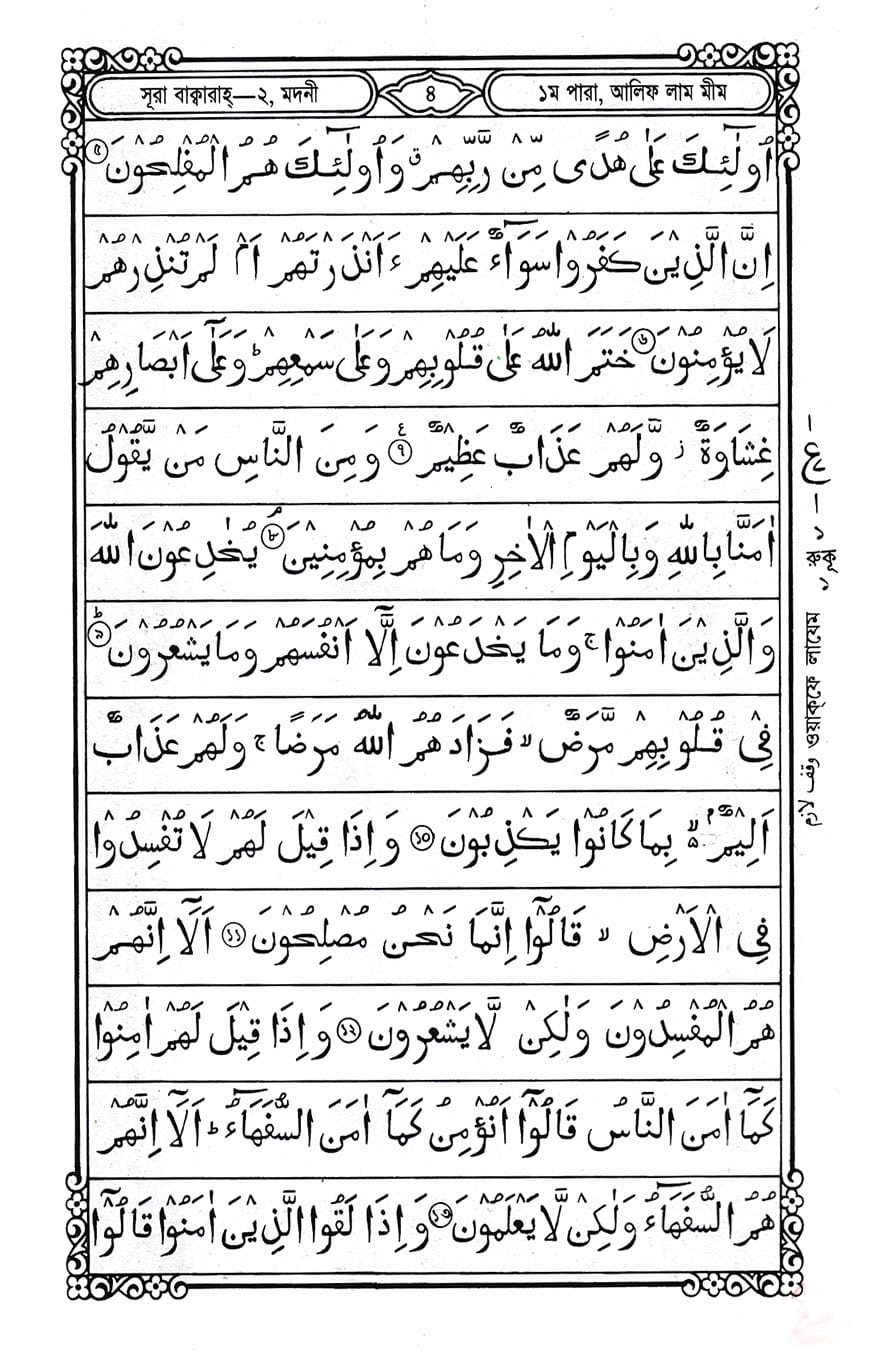 সূরা বাক্বারাহ্—২, মদনী
৪
১ম পারা, আলিফ লাম মীম
اُولٰٓئِكَ عَلٰى هُدًى مِّنْ رَّبِّهِمْ ۙ وَاُولٰٓئِكَ هُمُ الْمُفْلِحُوْنَ ৫
اِنَّ الَّذِيْنَ كَفَرُوْا سَوَآءٌ عَلَيْهِمْ ءَاَنْذَرْتَهُمْ اَمْ لَمْ تُنْذِرْهُمْ
لَا يُؤْمِنُوْنَ ৬ خَتَمَ اللّٰهُ عَلٰى قُلُوْبِهِمْ وَعَلٰى سَمْعِهِمْ ؕ وَعَلٰٓى اَبْصَارِهِمْ
غِشَاوَةٌ ز وَّلَهُمْ عَذَابٌ عَظِيْمٌ ৭ ع وَمِنَ النَّاسِ مَنْ يَّقُوْلُ
اٰمَنَّا بِاللّٰهِ وَبِالْيَوْمِ الْاٰخِرِ وَمَا هُمْ بِمُؤْمِنِيْنَ ۘ ৮ يُخٰدِعُوْنَ اللّٰهَ
وَالَّذِيْنَ اٰمَنُوْا ۚ وَمَا يَخْدَعُوْنَ اِلَّآ اَنْفُسَهُمْ وَمَا يَشْعُرُوْنَ ؕ ৯
فِيْ قُلُوْبِهِمْ مَّرَضٌ ۙ فَزَادَهُمُ اللّٰهُ مَرَضًا ۚ وَلَهُمْ عَذَابٌ
اَلِيْمٌ ۢ ۙ بِمَا كَانُوْا يَكْذِبُوْنَ ১০ وَاِذَا قِيْلَ لَهُمْ لَا تُفْسِدُوْا
فِى الْاَرْضِ ۙ قَالُوْٓا اِنَّمَا نَحْنُ مُصْلِحُوْنَ ১১ اَلَآ اِنَّهُمْ
هُمُ الْمُفْسِدُوْنَ وَلٰكِنْ لَّا يَشْعُرُوْنَ ১২ وَاِذَا قِيْلَ لَهُمْ اٰمِنُوْا
كَمَآ اٰمَنَ النَّاسُ قَالُوْٓا اَنُؤْمِنُ كَمَآ اٰمَنَ السُّفَهَآءُ ؕ اَلَآ اِنَّهُمْ
هُمُ السُّفَهَآءُ وَلٰكِنْ لَّا يَعْلَمُوْنَ ১৩ وَاِذَا لَقُوا الَّذِيْنَ اٰمَنُوْا قَالُوْٓا
ع
১
রুকূ
وقف لازم ওয়াক্‌ফে লাযেম